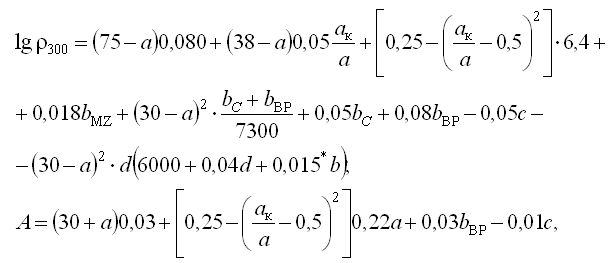 lg ρ₃₀₀ = (75 – a)0,080 + (38 – a)0,05 aₖ/a + [0,25 – (aₖ/a – 0,5)²]·6,4 +
+ 0,018b_MZ + (30 – a)² · (b_C + b_BP)/7300 + 0,05b_C + 0,08b_BP – 0,05c –
– (30 – a)² · d(6000 + 0,04d + 0,015*b);
A = (30 + a)0,03 + [0,25 – (aₖ/a – 0,5)²]0,22a + 0,03b_BP – 0,01c,